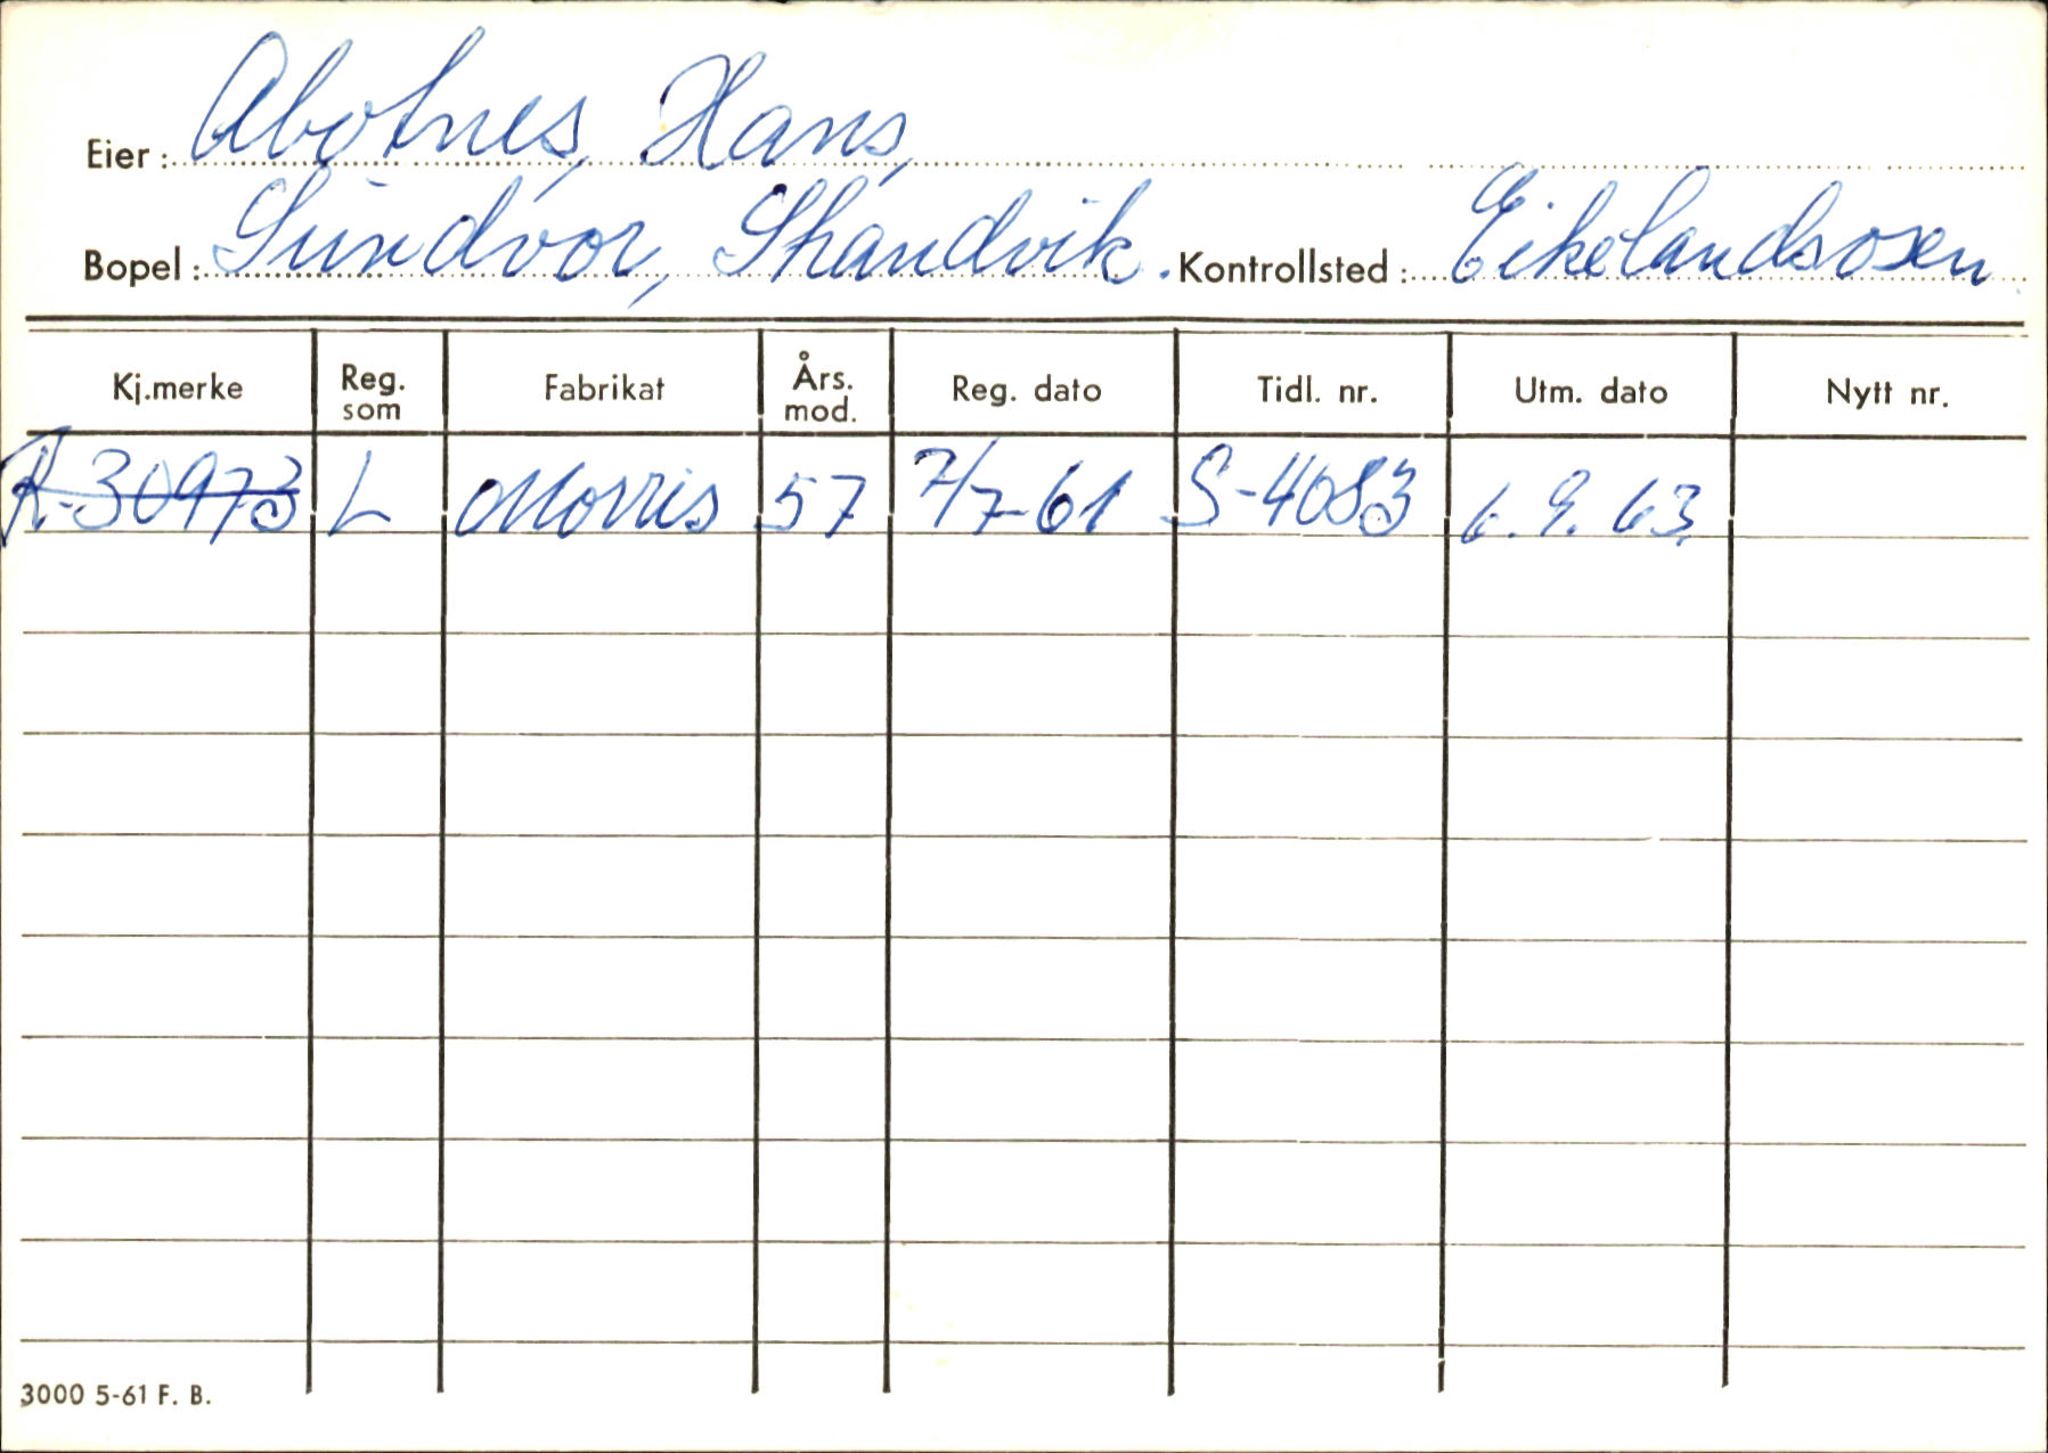 Eier: Abotnes, Hans,
Bopel: Sundvor, Skandvik. Kontrollsted: Eikelandsosen
Kj.merke Reg. som Fabrikat Års. mod. Reg. dato Tidl. nr. Utm. dato Nytt nr.
R-30973 L Morris 57 7/7-61 S-4083 6.9.63.
3000 5-61 F. B.